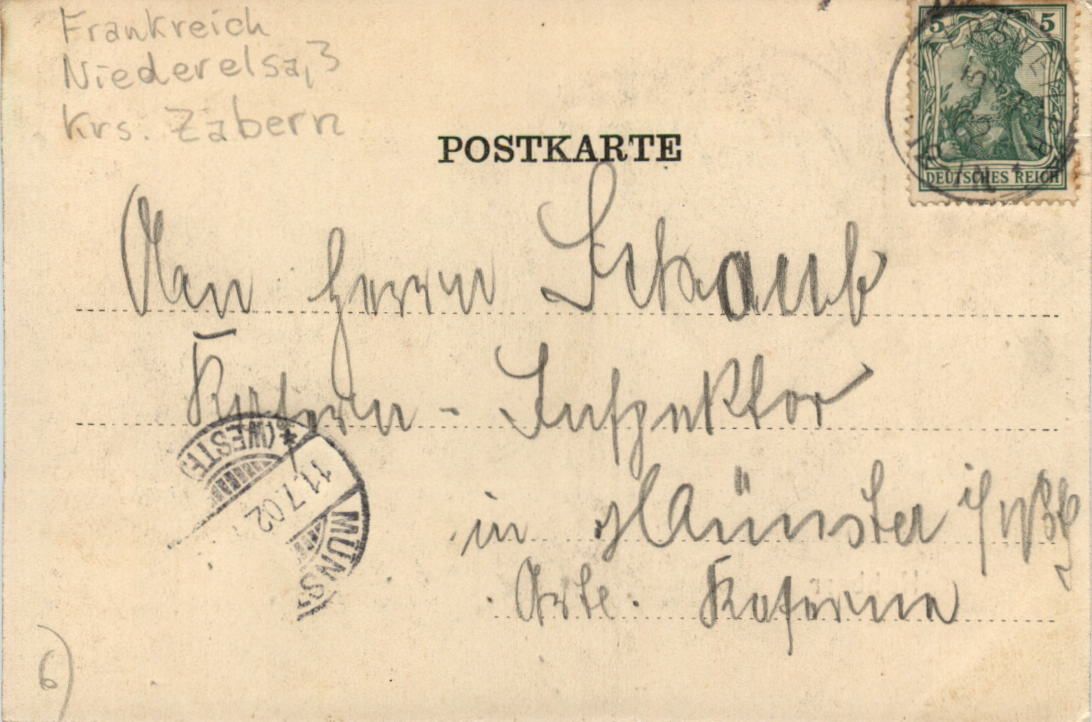 Frankreich
Niederelsa,3
Krs. Zabern
5 5
DEUTSCHES REICH
POSTKARTE
An Herrn Schaub
Kasern - Inspektor
in Münster i/W
Arte. Kaserne
MÜNS
11.7.02
* (WESTF.)
6)